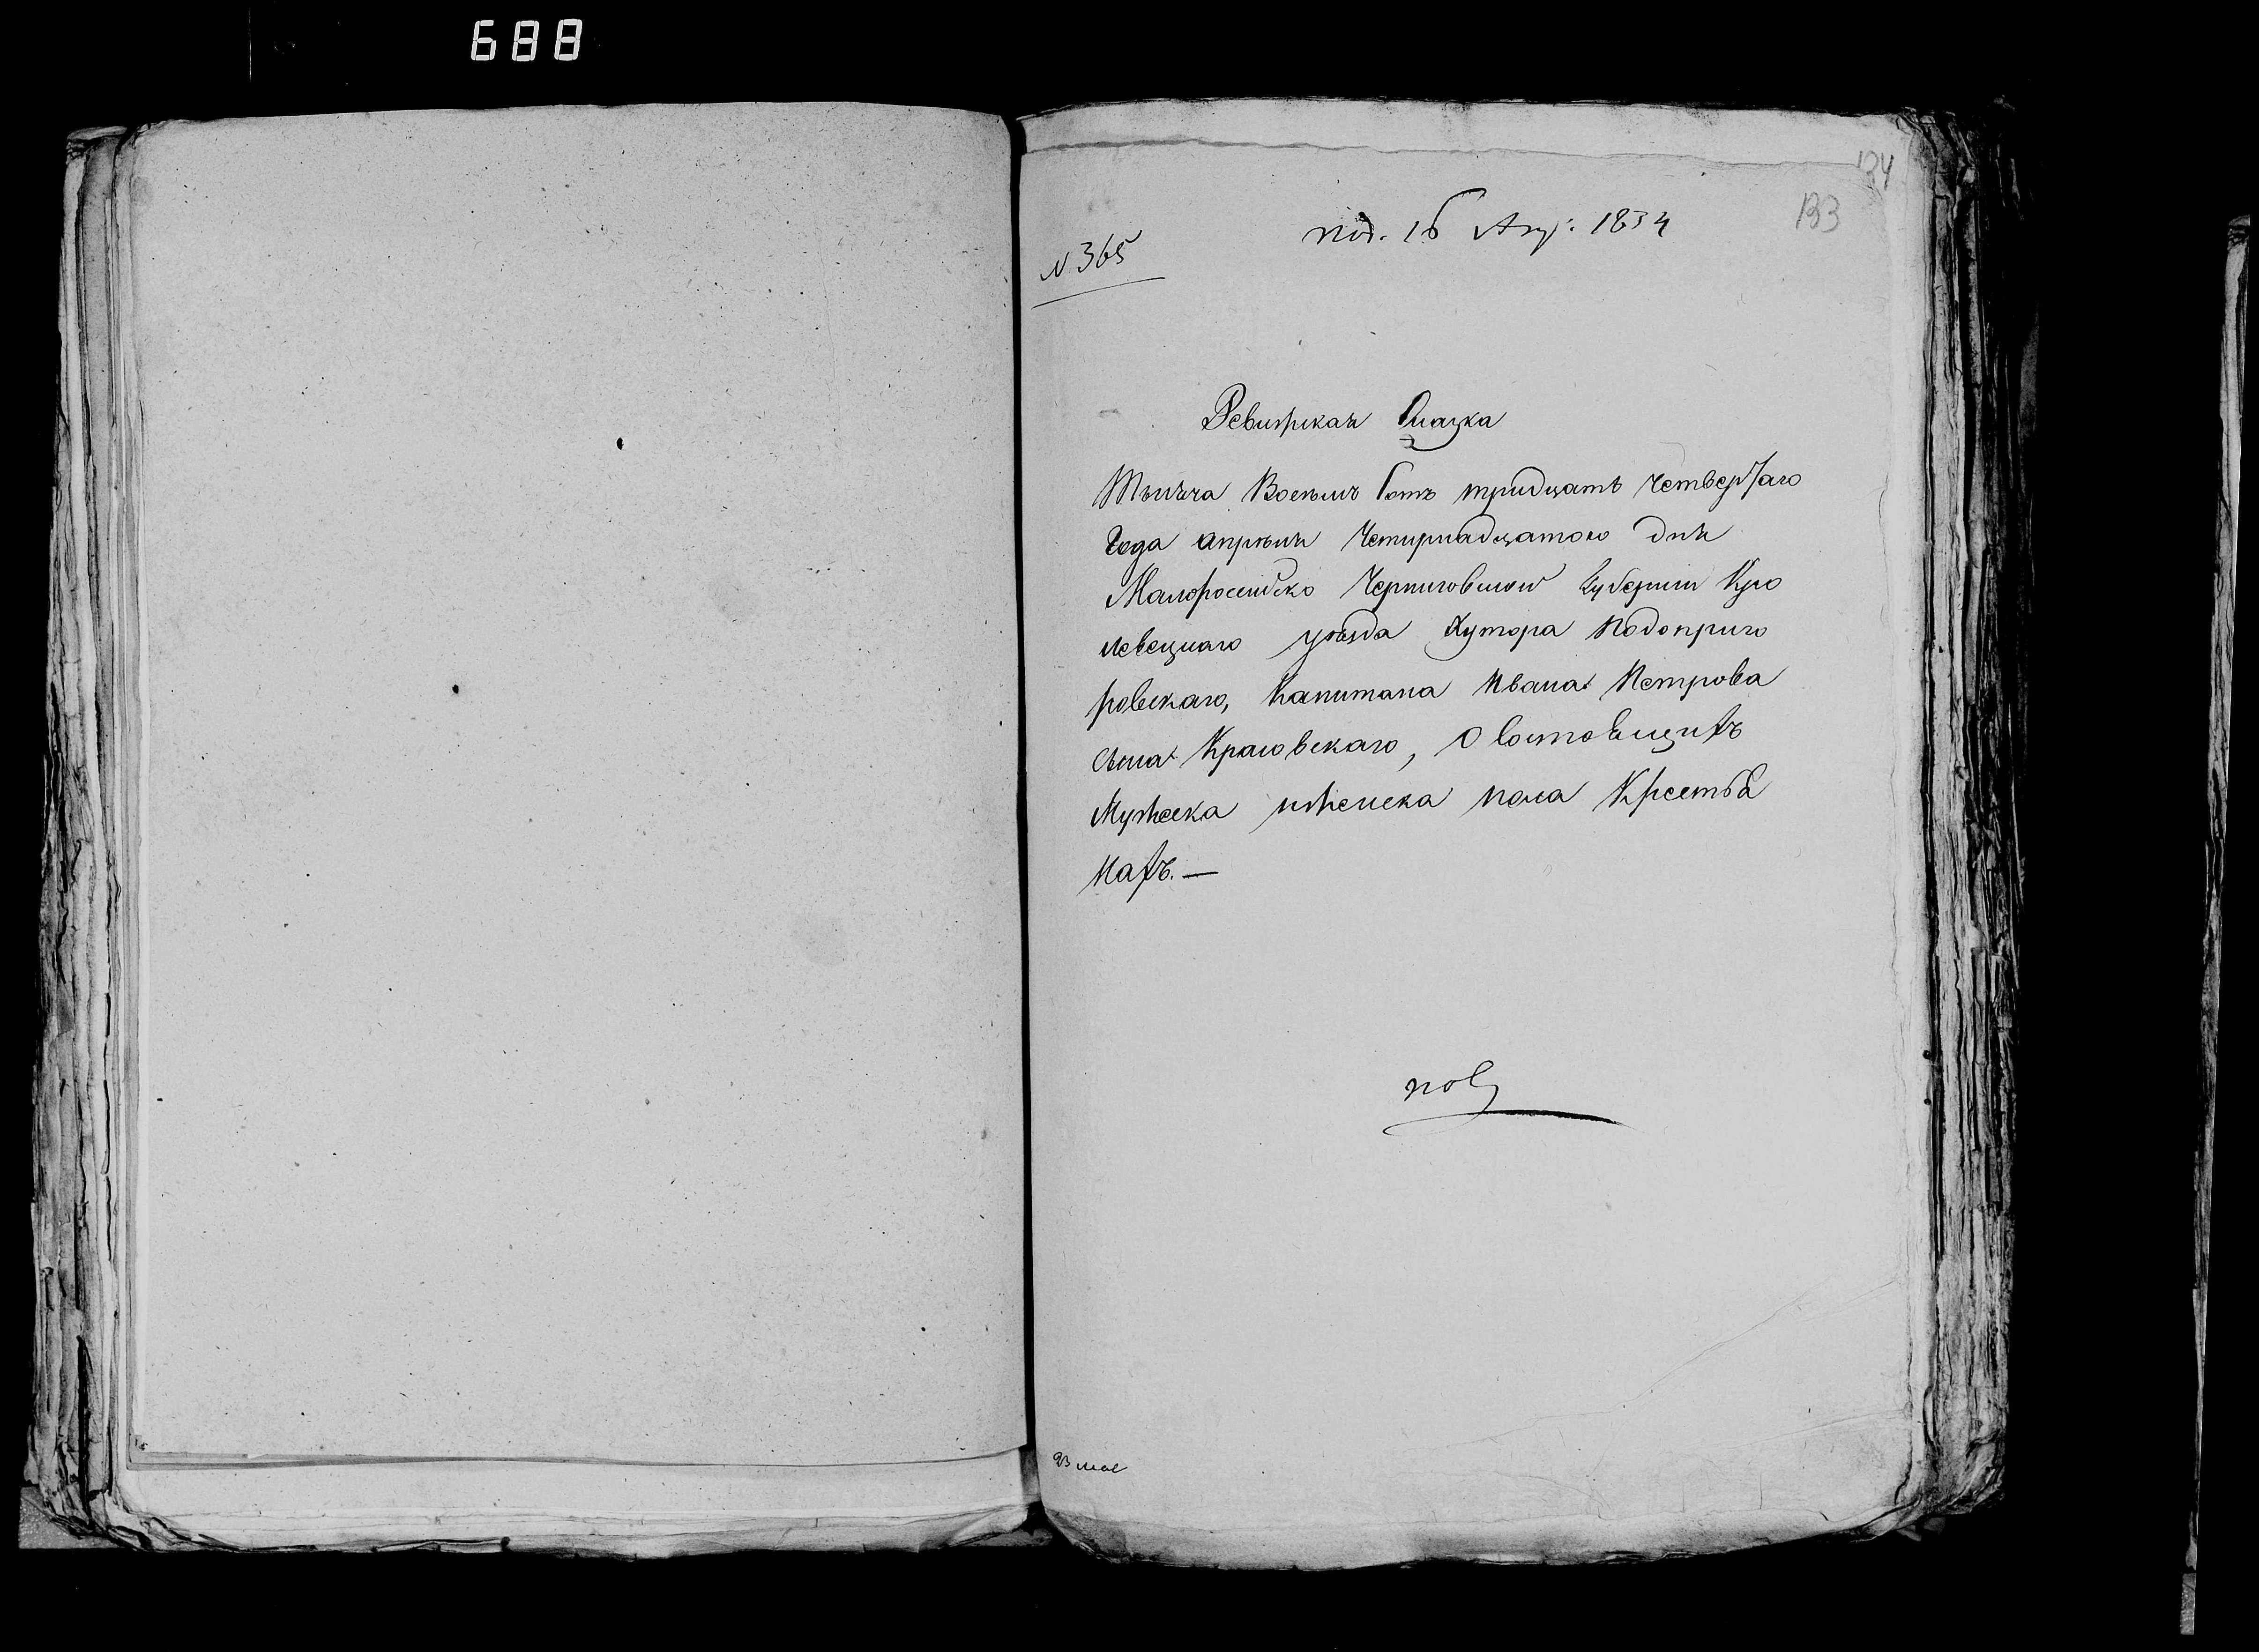 688
134
133
под. 16 Апр: 1834
N 365
Ревизская Скаска
Тысяча Восемъ Сотъ тридцать четвертаго
Года апреля Четирнадцатого дня
Малоросейско Черниговской Губернии Кро
левецкаго уезда Хутора Подоприго
ровскаго, Капитана Ивана Петрова
Сына Краговскаго, О состоящихъ
Мужеска иженска пола Крестья
нахъ. —